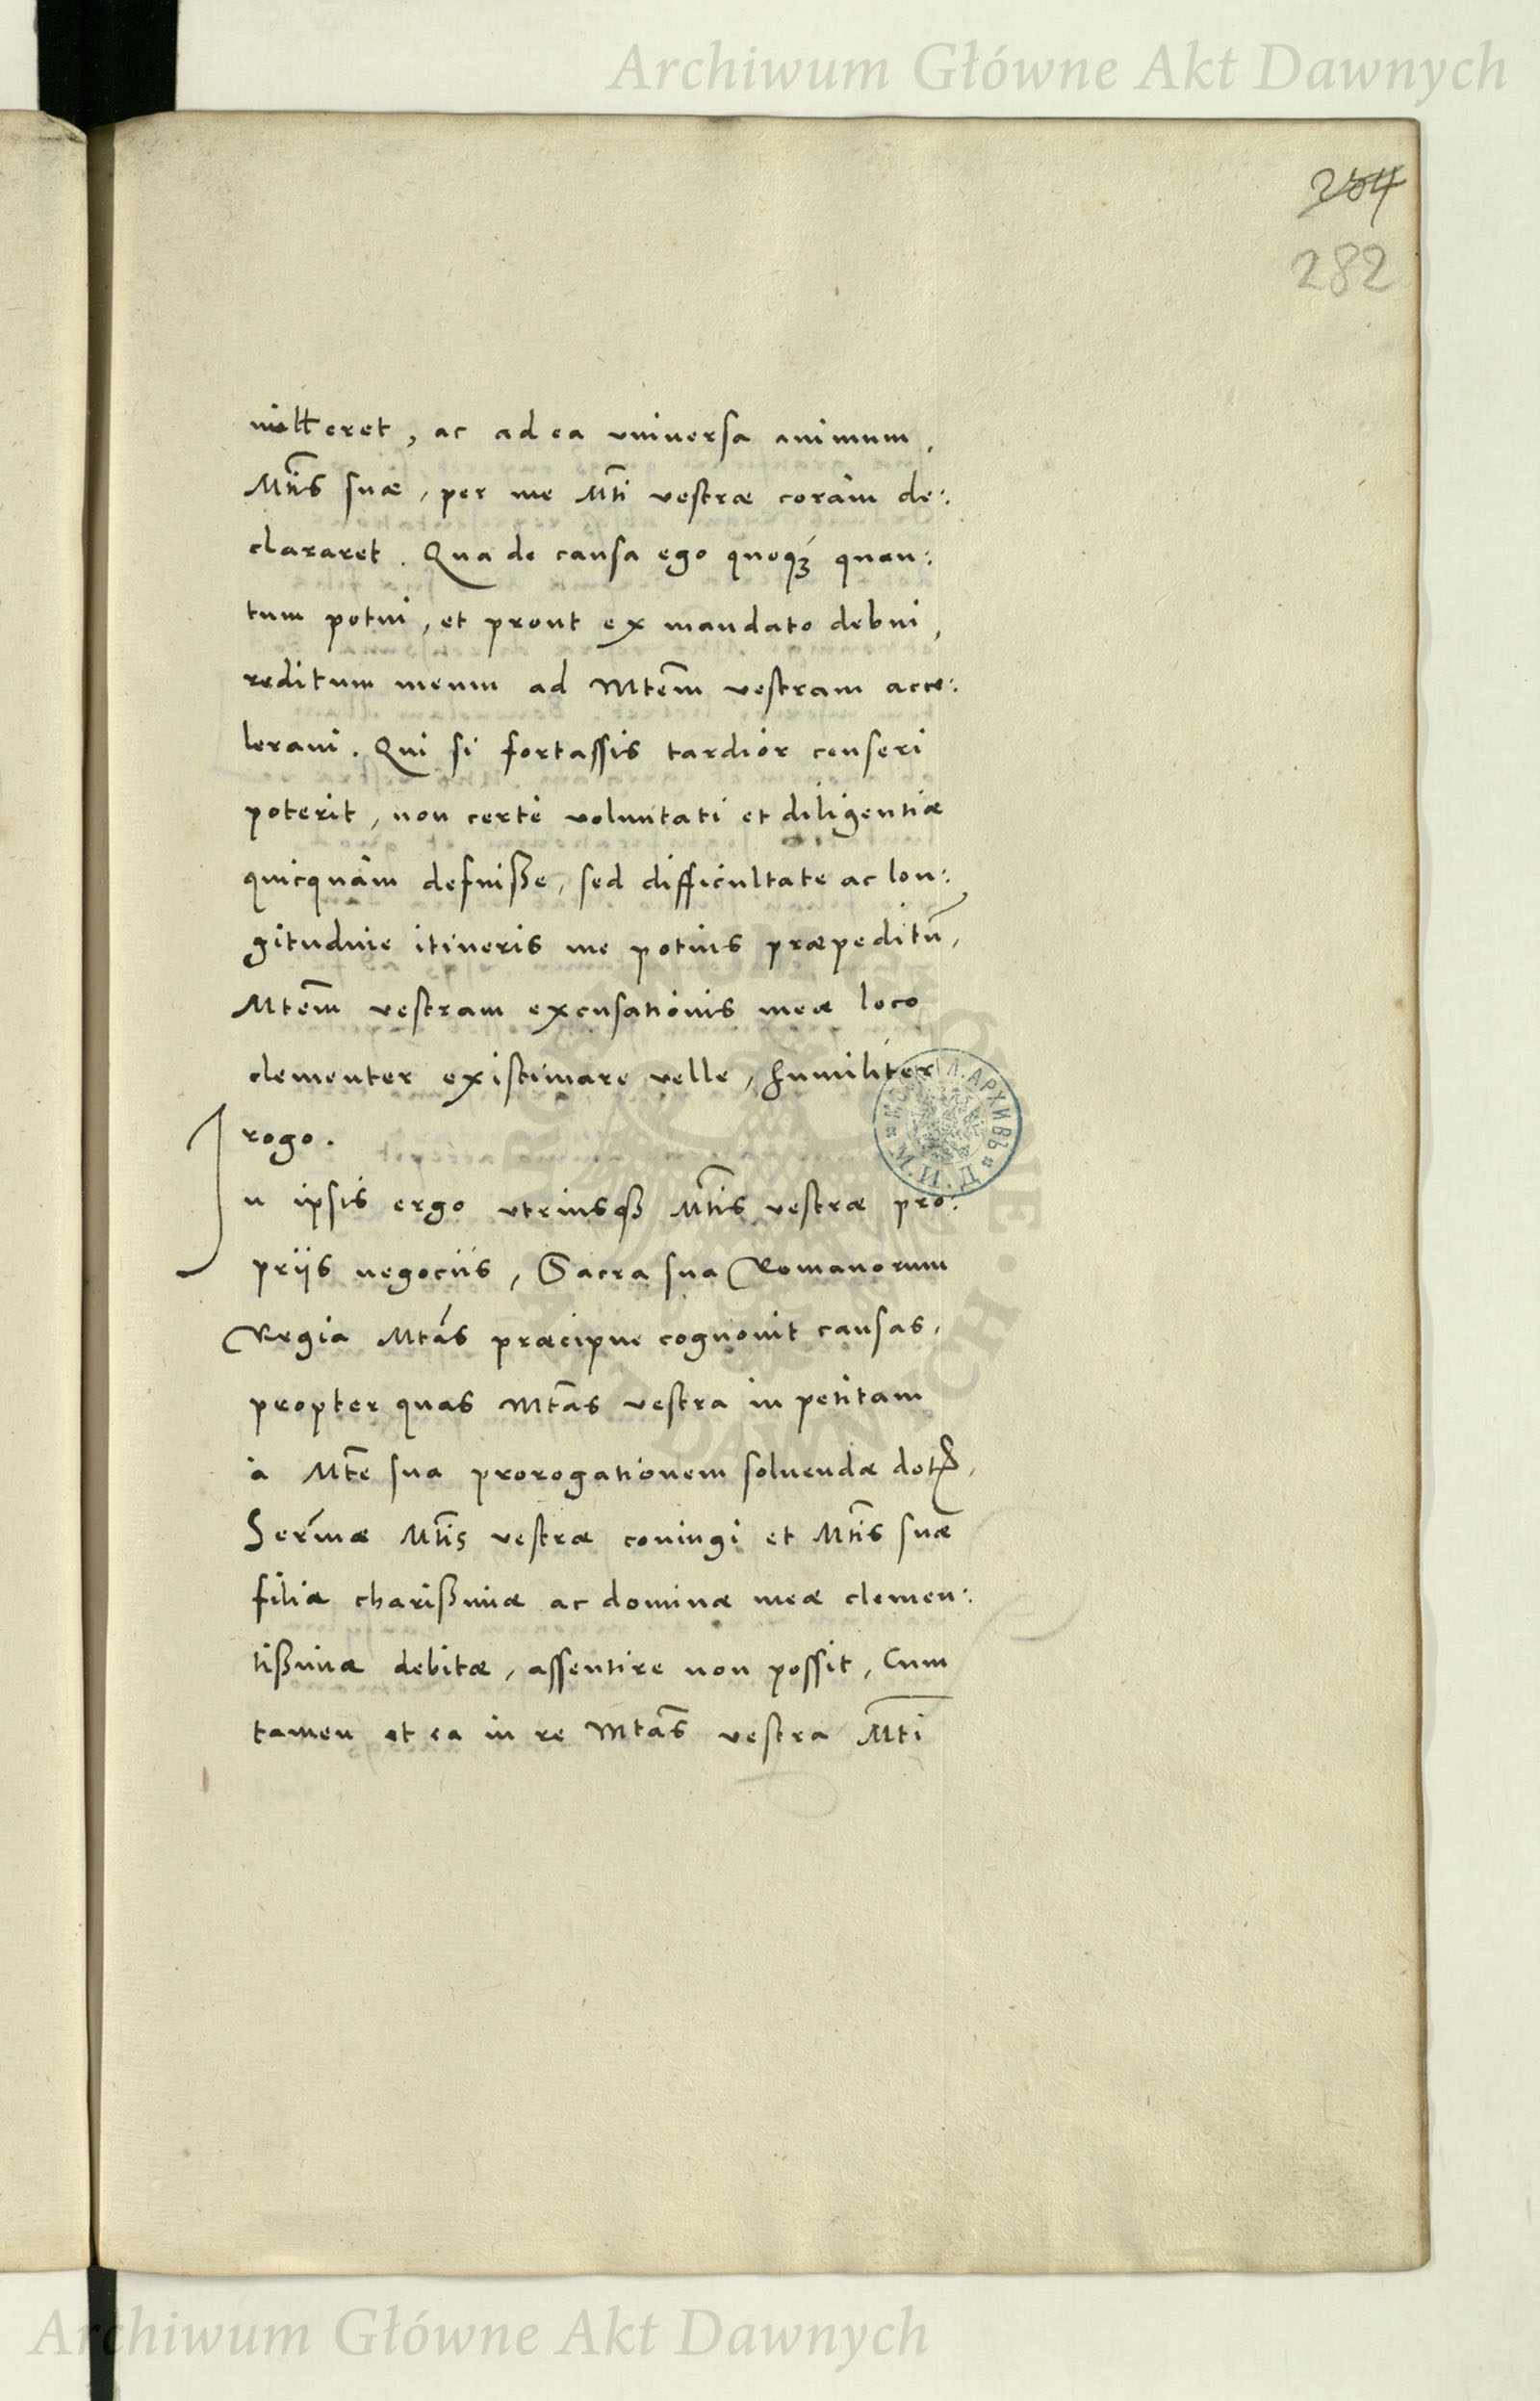 Archiwum Główne Akt Dawnych
204
282
mitteret, ac ad ea vniuersa animum,
Mtis suæ, per me Mti vestræ coràm de:
clararet. Qua de causa ego quoqꝫ quan:
tum potui, et prout ex mandato debui,
reditum meum ad Mtem vestram acce:
leraui. Qui si fortassis tardior censeri
poterit, non certè voluntati et diligentiæ
quicquàm defuiße, sed difficultate ac lon:
gitudine itineris me potius præpeditū,
Mtem vestram excusationis meæ loco
clementer existimare velle, humiliter
rogo.
In ipsis ergo vtriusqꝫ Mtis vestræ pro:
priis negociis, Sacra sua Romanorum
Regia Mtas præcipue cognouit causas,
propter quas Mtas vestra in petitam
à Mte sua prorogationem soluendæ dotis,
Sermæ Mtis vestræ coniugi et Mtis suæ
filiæ charißimæ ac dominæ meæ clemen:
tißimæ debitæ, assentire non possit, Cum
tamen et ea in re Mtas vestra Mti
Archiwum Główne Akt Dawnych